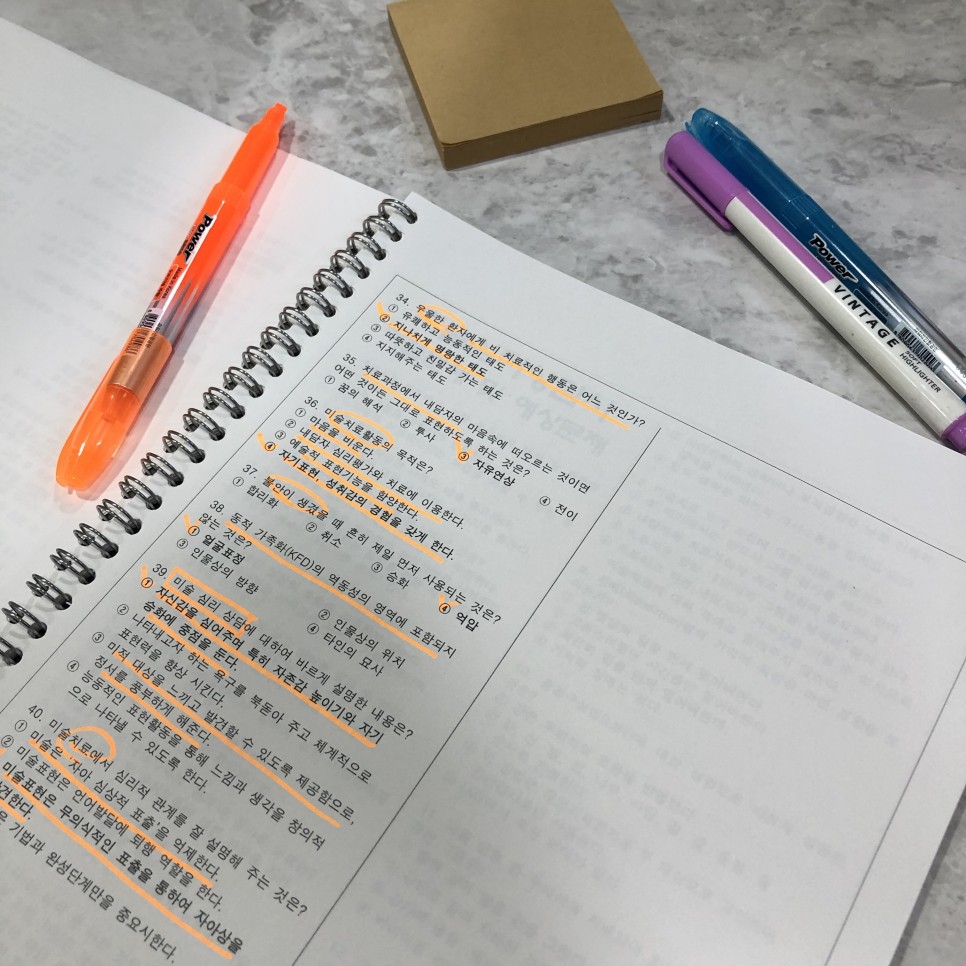 34. 우울한 환자에게 비 치료적인 행동은 어느 것인가?
① 유쾌하고 능동적인 태도
② 지나치게 명랑한 태도
③ 따뜻하고 친밀감 가는 태도
④ 지지해주는 태도
35. 치료과정에서 내담자의 마음속에 떠오르는 것이면
어떤 것이든 그대로 표현하도록 하는 것은?
① 꿈의 해석 ② 투사 ③ 자유연상 ④ 전이
36. 미술치료활동의 목적은?
① 마음을 비운다.
② 내담자 심리평가와 치료에 이용한다.
③ 예술적 표현기능을 함양한다.
④ 자기표현, 성취감의 경험을 갖게 한다.
37. 불안이 생겼을 때 흔히 제일 먼저 사용되는 것은?
① 합리화 ② 취소 ③ 승화 ④ 억압
38. 동적 가족화(KFD)의 역동성의 영역에 포함되지
않는 것은?
① 얼굴표정 ② 인물상의 위치
③ 인물상의 방향 ④ 타인의 묘사
39. 미술 심리 상담에 대하여 바르게 설명한 내용은?
① 자신감을 심어주며 특히 자존감 높이기와 자기
승화에 중점을 둔다.
② 나타내고자 하는 욕구를 북돋아 주고 체계적으로
표현력을 향상 시킨다.
③ 미적 대상을 느끼고 발견할 수 있도록 제공함으로,
정서를 풍부하게 해준다.
④ 능동적인 표현활동을 통해 느낌과 생각을 창의적
으로 나타낼 수 있도록 한다.
40. 미술치료에서 심리적 관계를 잘 설명해 주는 것은?
① 미술은 '자아 심상적 표출'을 억제한다.
② 미술표현은 언어발달에 퇴행 역할을 한다.
미술표현은 무의식적인 표출을 통하여 자아상을
기법과 완성단계만을 중요시한다.
Power
Power
VINTAGE
SOFT
HIGHLIGHTER